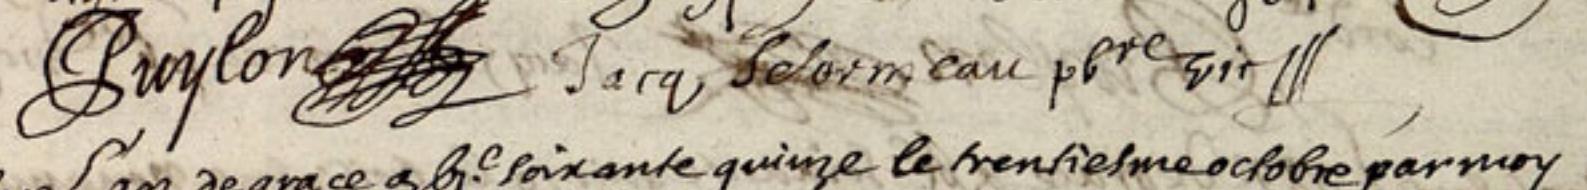 Puylon Jacq Delormeau pbre vic
L'an de grace soixante quinze le trentiesme octobre par moy